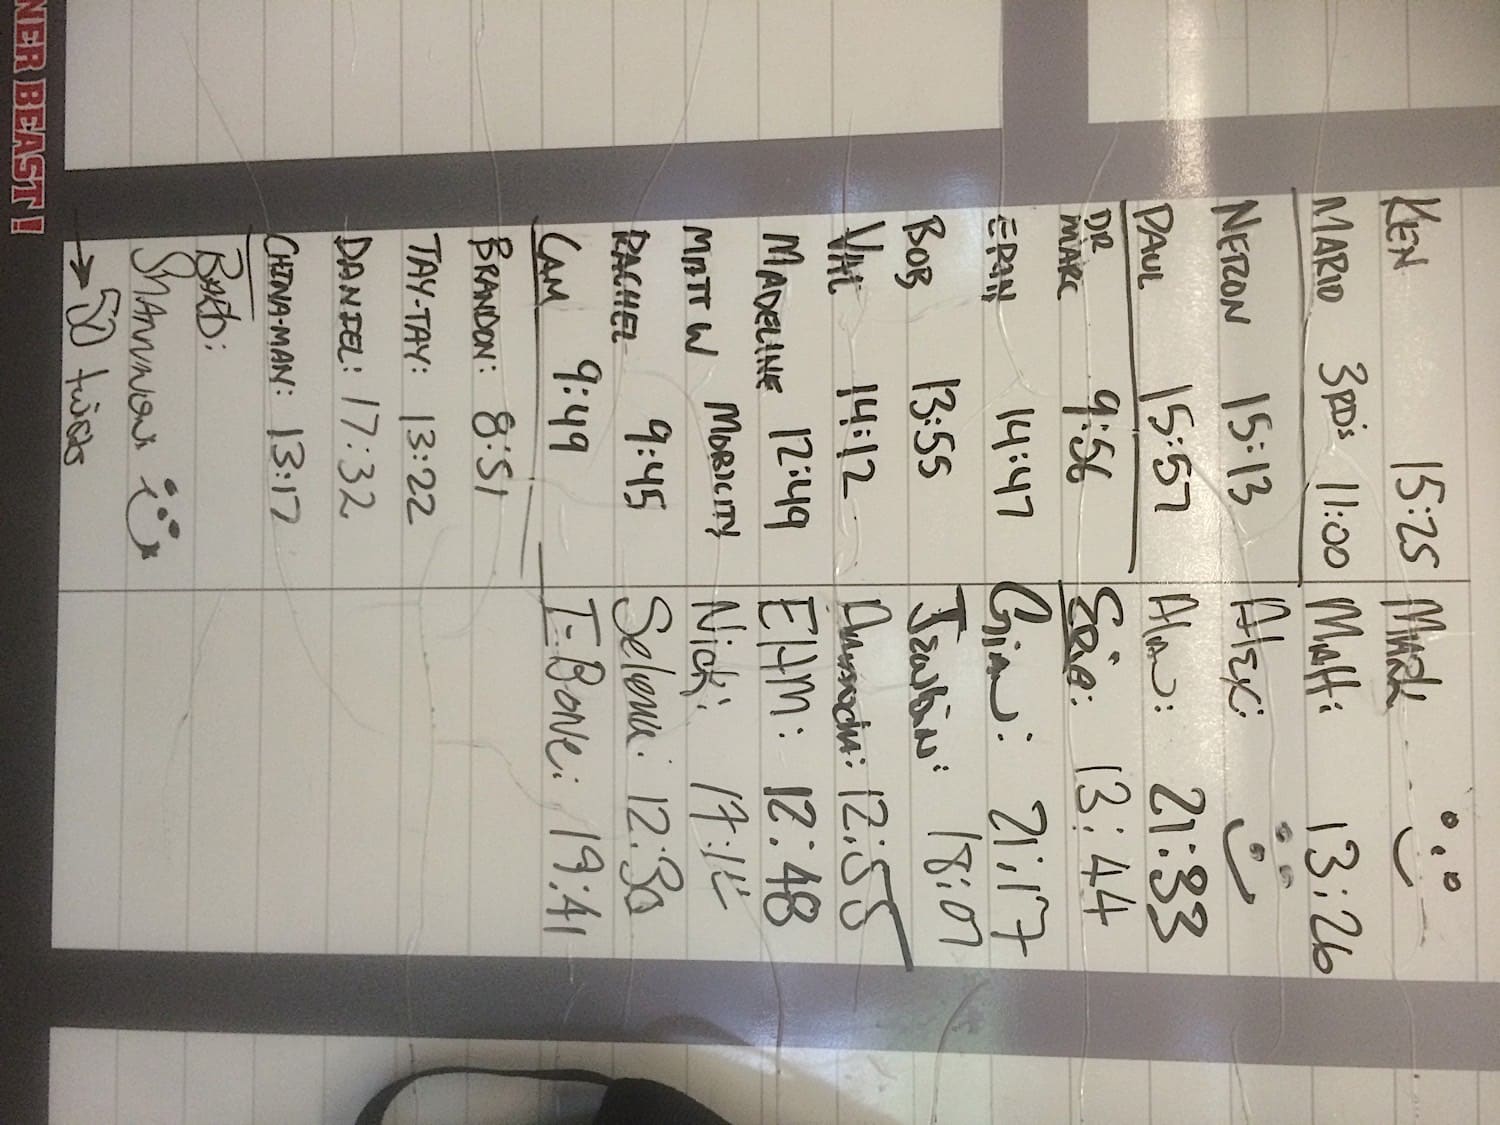 KEN 15:25
MARIO 3RD'S 11:00
NETZON 15:13
PAUL 15:57
DR MARC 9:56
ERIN 14:47
BOB 13:55
VAL 14:12
MADELINE 12:49
MATT W MOBILITY
RACHEL 9:45
CAM 9:49
BRANDON: 8:51
TAY-TAY: 13:22
DANIEL: 17:32
CHINA-MAN: 13:17
SHANNON
→ 50 twists
Mark:
Matt: 13:26
Alex:
Alan: 21:33
Eric: 13:44
Gian: 21:17
18:07
Amanda: 12:55
EHM: 12:48
Nick:
Selena: 12:30
T-Bone: 19:41
NER BEAST!